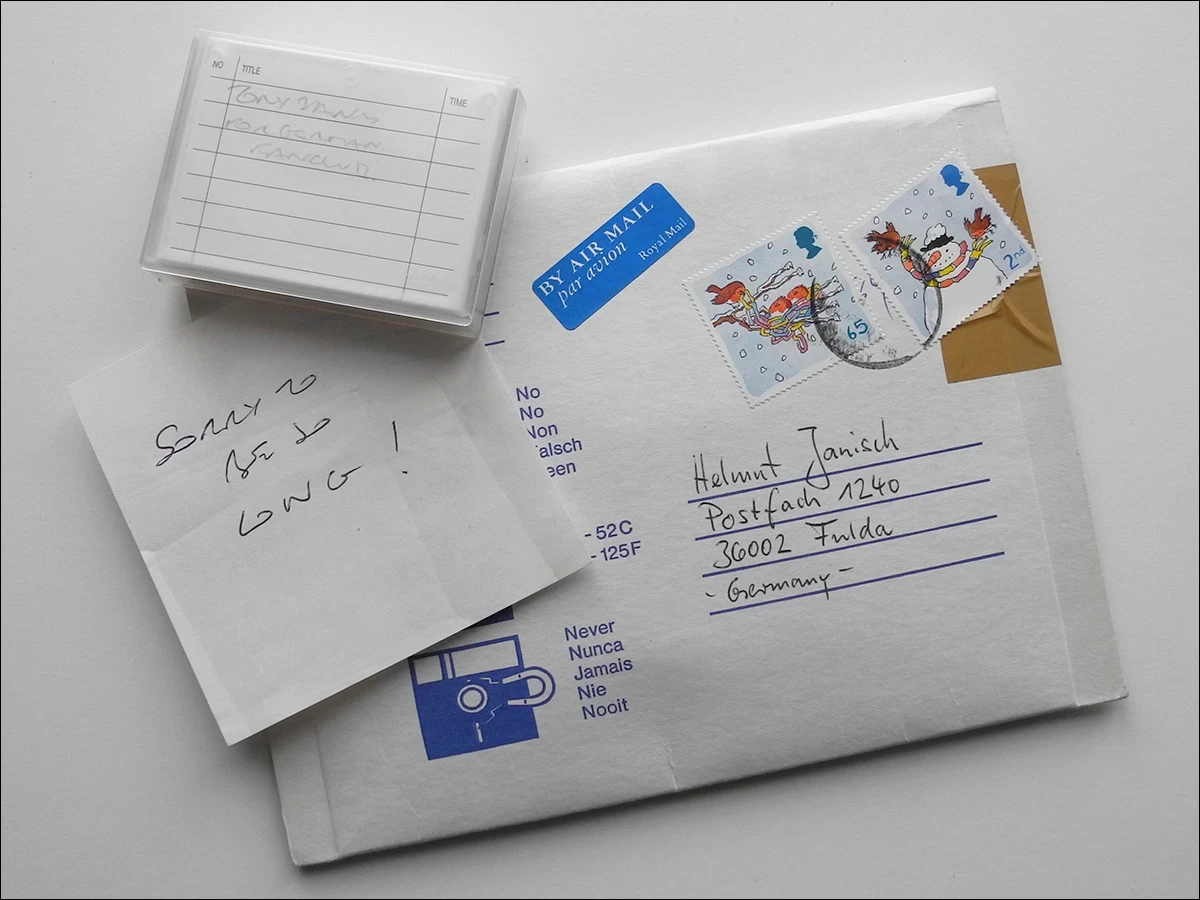 NO TITLE TIME
TONY BANKS
FOR GERMAN
FANCLUB.
SORRY TO
BE SO
LONG !
BY AIR MAIL
par avion
Royal Mail
65
2nd
Helmut Janisch
Postfach 1240
36002 Fulda
- Germany -
No
No
Non
alsch
een
- 52C
- 125F
Never
Nunca
Jamais
Nie
Nooit